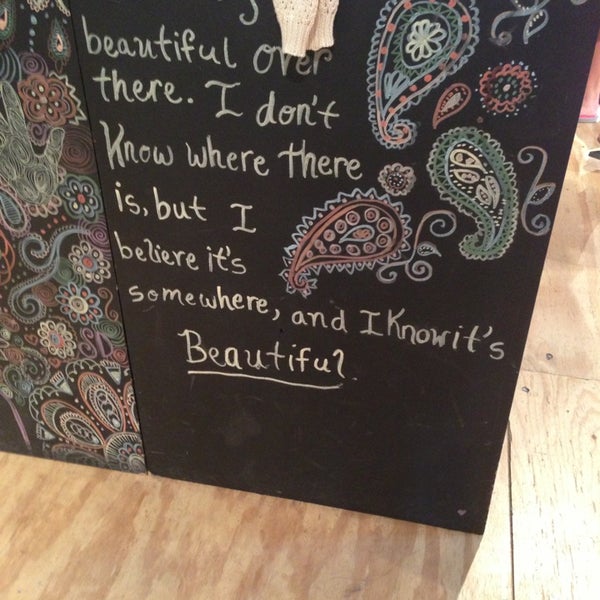 beautiful over
there. I don't
Know where there
is, but I
believe it's
somewhere, and I Know it's
Beautiful.